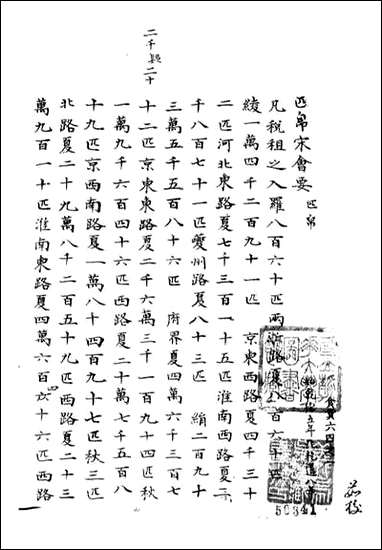 二千懸二十
匹帛宋會要 匹帛
凡稅租之入羅八百六十匹兩浙路夏八百六十匹
綾一萬四千二百九十一匹 京東西路夏四千三十
二匹河北東路夏七千三百一十五匹淮南西路夏二
千八百七十一匹夔州路夏八十三匹 絹二百九十
三萬五千五百八十六匹 府界夏四萬六千三百七
十二匹京東東路夏二千六萬三千一百九十四匹秋
一萬九千六百四十六匹西路夏二十萬七千五百八
十九匹京西南路夏一萬八十四百九十七匹秋三匹
北路夏二十九萬八千二百五十九匹西路夏二十三
萬九百一十匹淮南東路夏四萬六百四六十六匹西路
食貨六四
50341